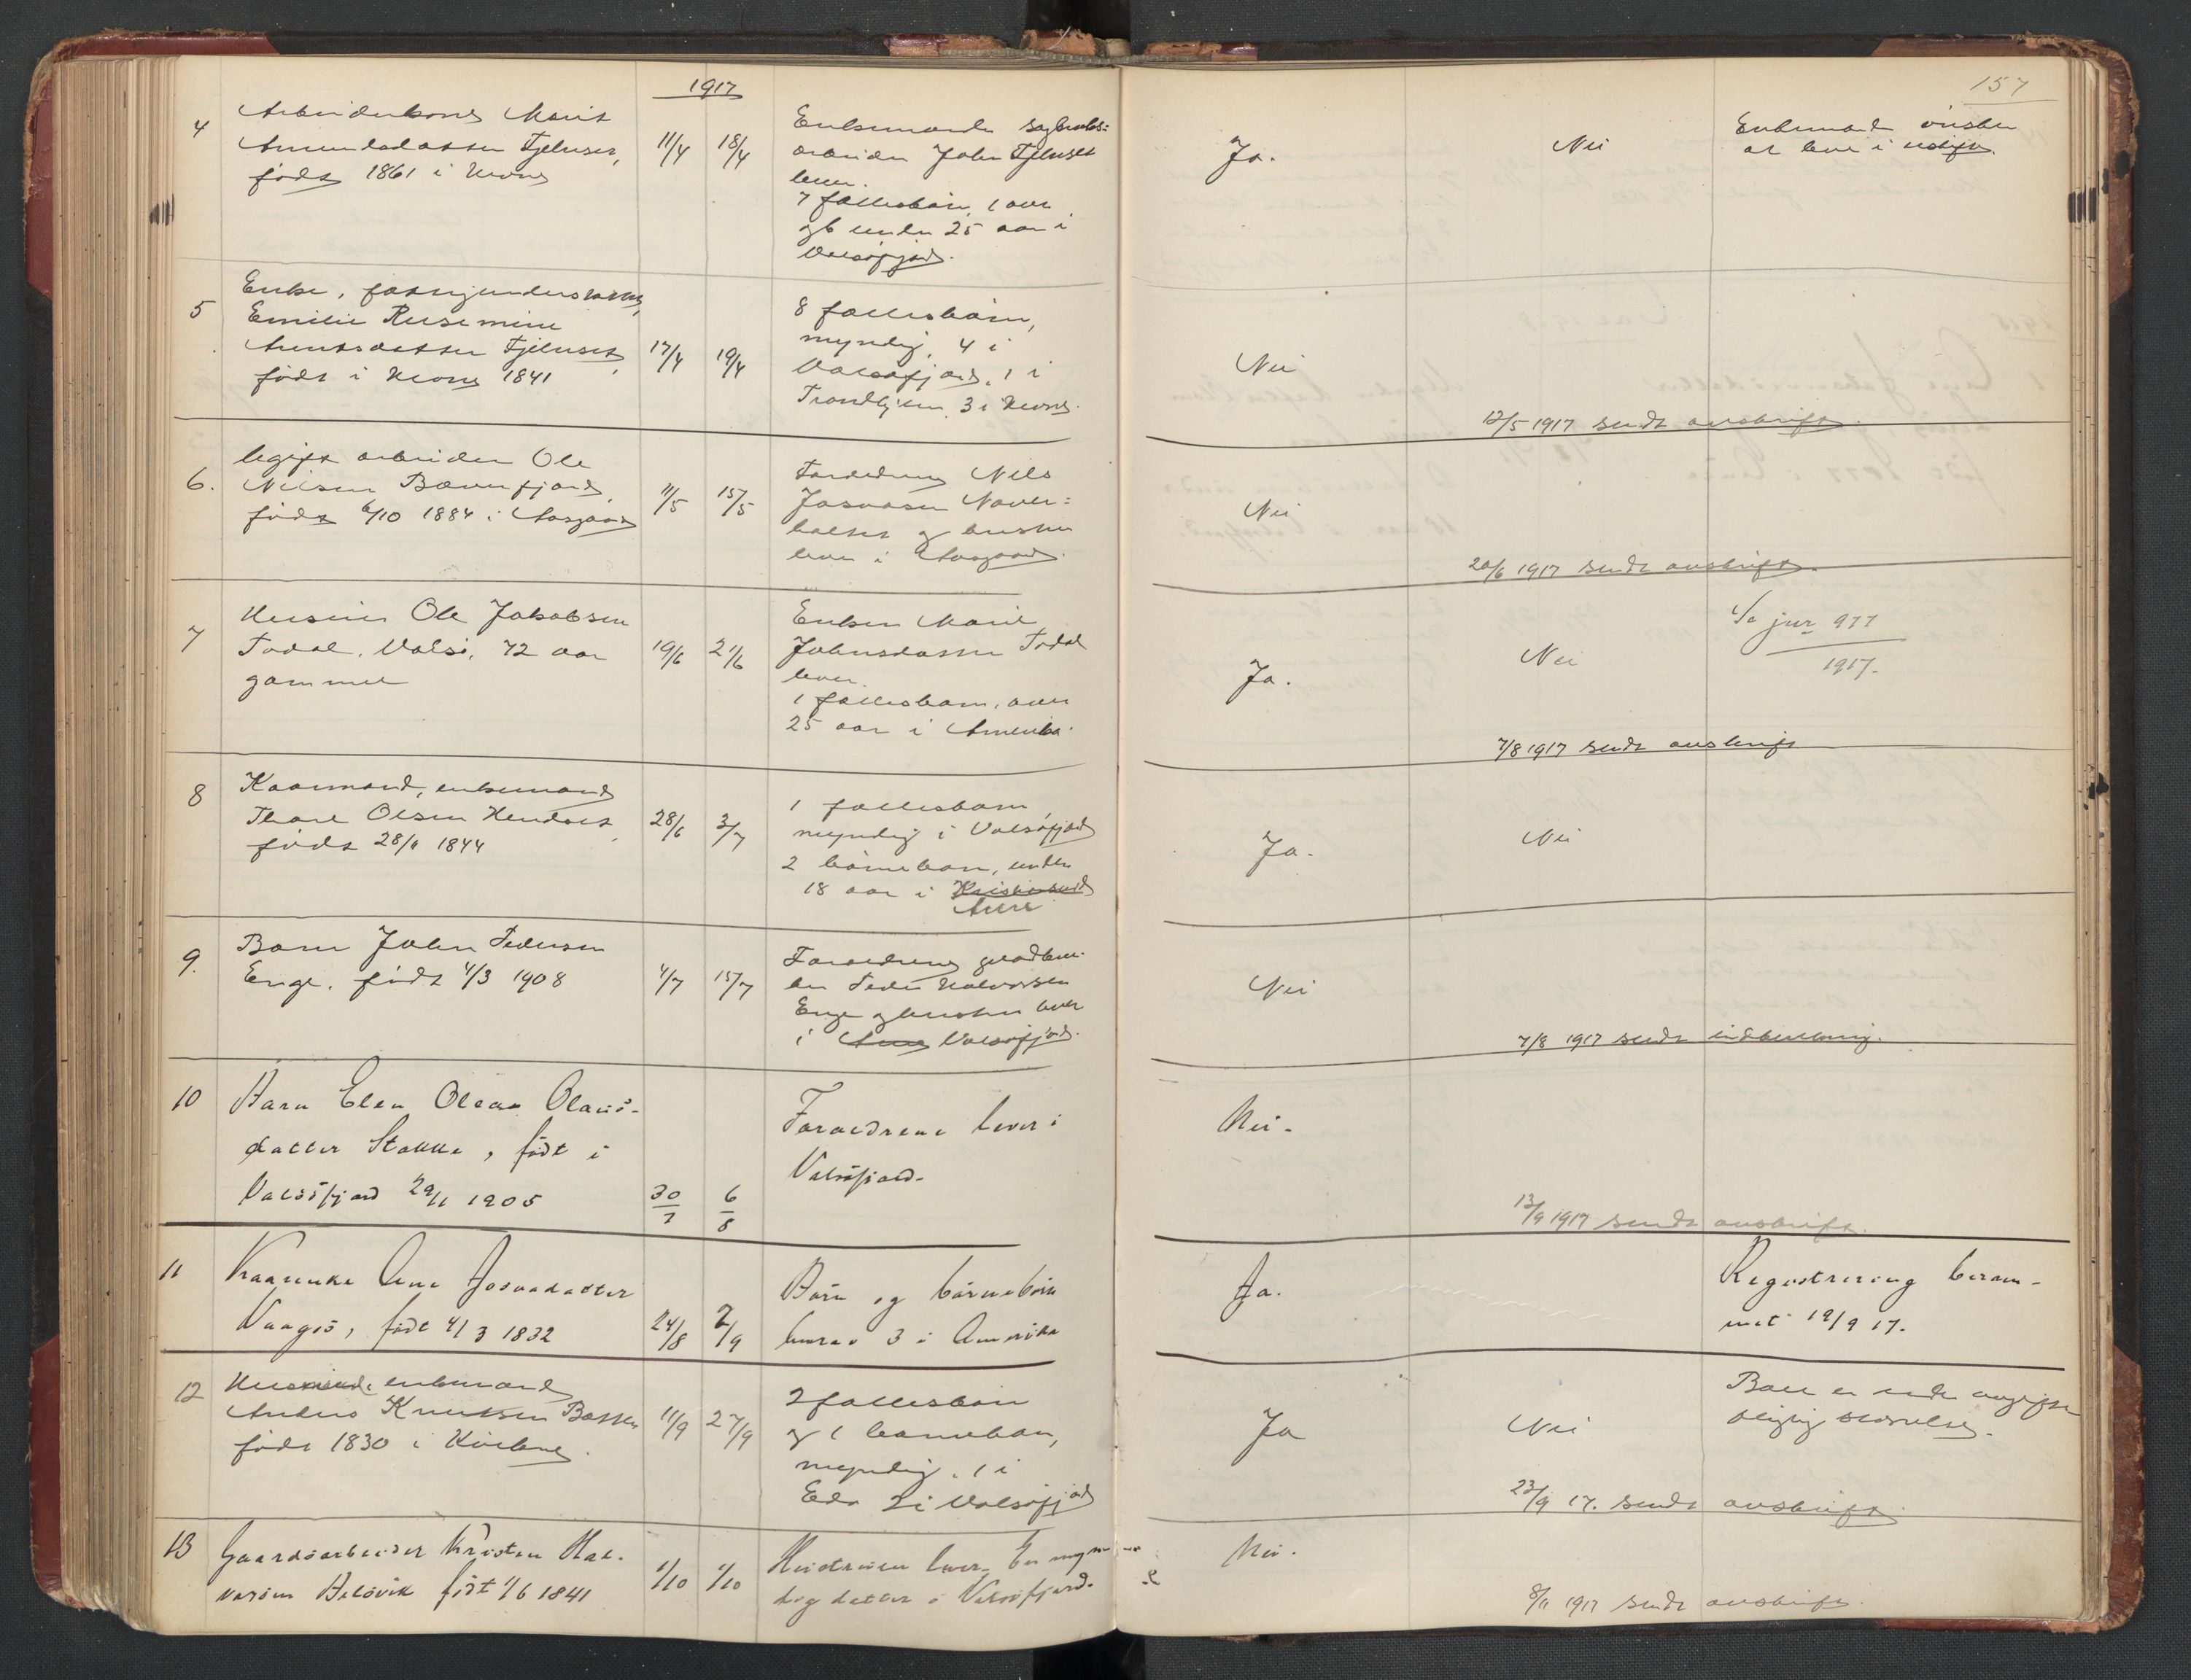 1917
157
4
Arbeiderkone Marit
Amundsdatter Fjelnset,
født 1861 i
11/4 18/4
Enkemanden sagbruks=
arbeider John Fjelnset
lever.
7 fællesbørn, 1 over
og 6 under 25 aar i
Valsøfjord.
Ja.
Nei
Enkemand ønsker
at leve i uskifte.
5
Enke, fattigunderstøttet,
Emilie Rusemine
Arntsdatter Fjelnset,
født i 1841
17/4 19/4
8 fællesbørn,
myndig, 4 i
Valsøfjord, 1 i
Trondhjem, 3 i
Nei
12/5 1917 sendt avskrift.
6.
Ugift arbeider Ole
Nilsen Bævenfjord,
født 6/10 1884 i Aasgaard
11/5 15/5
Forældrene Nils
Josvasen Naver=
halset og hustru
lever i Aasgaard.
Nei
20/6 1917 sendt avskrift.
7
Husmor Ole Jakobsen
Todal, Valsø, 72 aar
gammel
19/6 21/6
Enken Marit
Johnsdatter Todal
lever.
1 fællesbarn, over
25 aar i Amerika.
Ja.
Nei
jnr 977
1917.
7/8 1917 sendt avskrift
8
Kaarmand, enkemand
Thore Olsen Hendset,
født 28/11 1844
28/6 3/7
1 fællesbarn
myndig i Valsøfjord
2 børnebarn, under
18 aar i Kristiansund
Aure
Ja.
Nei
9.
Barn John Pedersen
Enge, født 4/3 1908
4/7 15/7
Forældrene gaardbru-
ker Peder Halvorsen
Enge og hustru lever
i Aure Valsøfjord.
Nei
7/8 1917 sendt indberetning.
10
Barn Elen Oleae Olaus-
datter Stokke, født i
Valsøfjord 29/11 1905
30/7 6/8
Forældrene lever i
Valsøfjord.
Nei.
13/9 1917 sendt avskrift.
11
Kaarenke Ane Josvadatter
Vaagø, født 4/3 1832
24/8 2/9
Børn og børnebørn
hvorav 3 i Amerika
Ja.
Registrering beram-
met 19/9 17.
12
Husmand, enkemand
Anders Knutsen Botten
født 1830 i
11/9 27/9
2 fællesbørn
og 1 barnebarn,
myndig, 1 i
Edø 2 i Valsøfjord
Ja
Nei
Boet er under avgifts-
pligtig størrelse.
23/9 17. sendt avskrift.
13
Gaardsarbeider Kristen Hal-
vorsen Belsvik født 1/6 1841
1/10 1/10
Hustruen lever. En myn-
dig datter i Valsøfjord.
Nei.
8/11 1917 sendt avskrift.